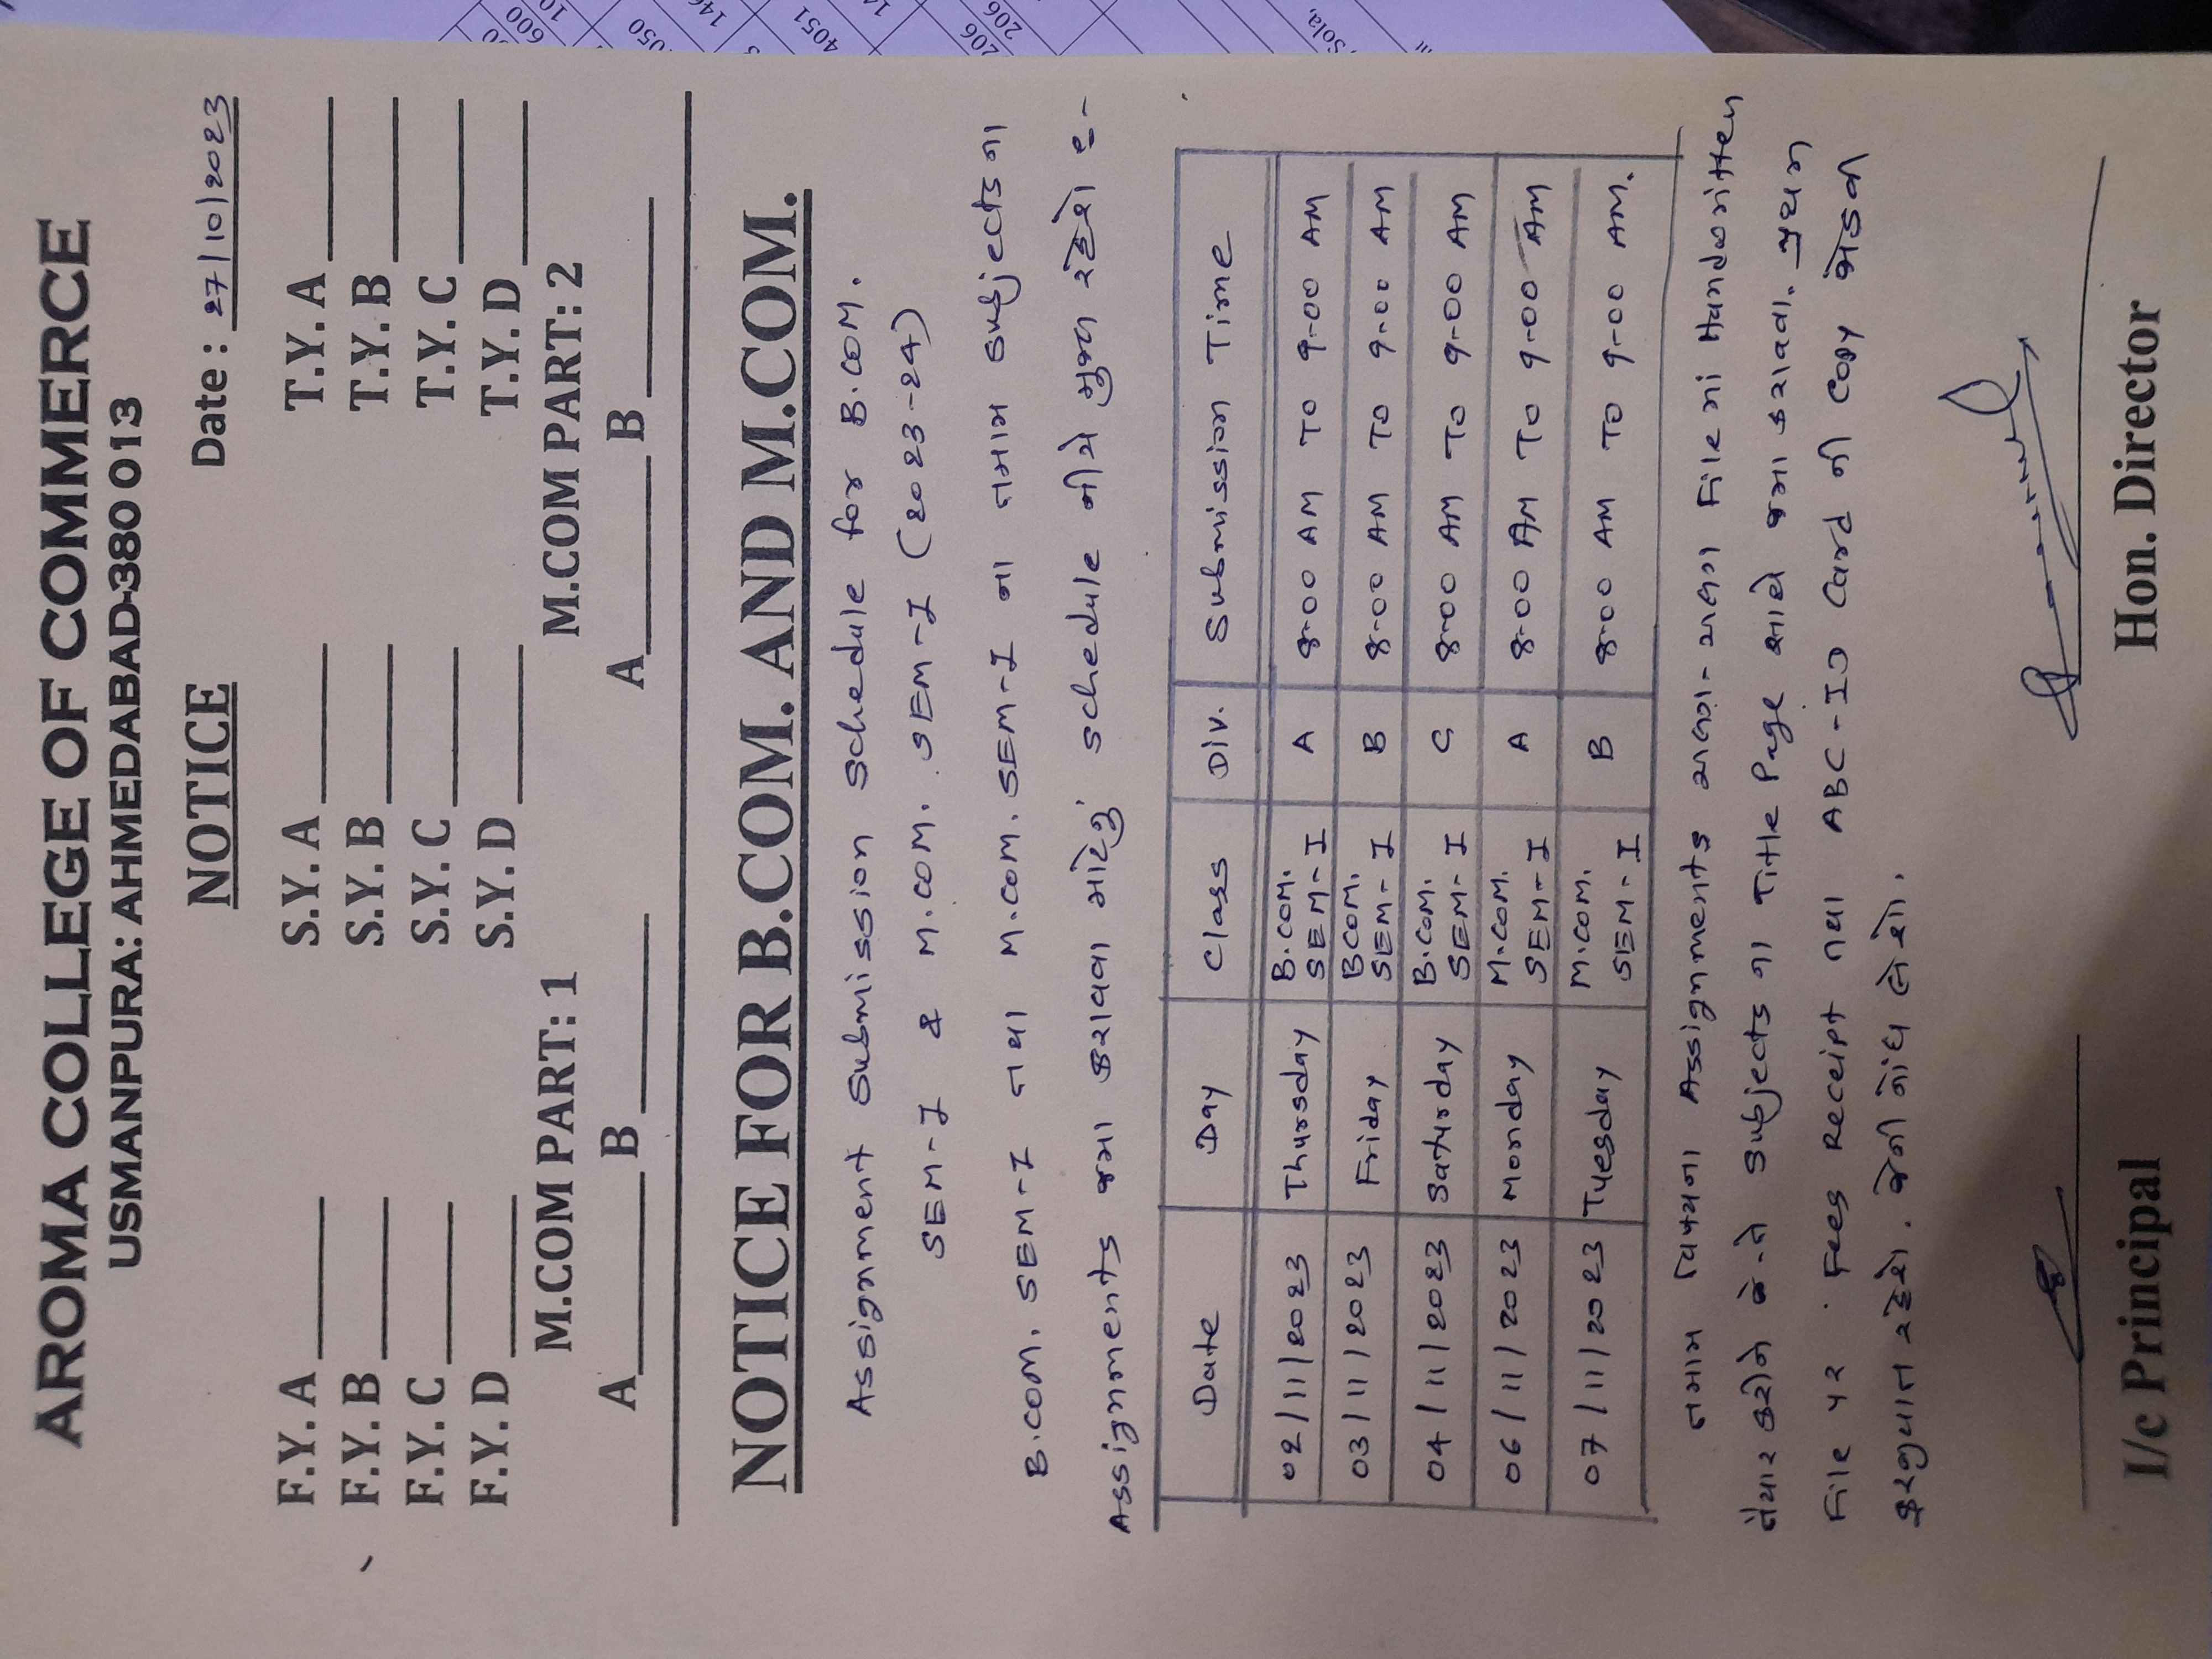 AROMA COLLEGE OF COMMERCE
USMANPURA: AHMEDABAD-380 013
NOTICE Date : 27/10/2023
F.Y. A S.Y. A T.Y. A
F.Y. B S.Y. B T.Y. B
F.Y. C S.Y. C T.Y. C
F.Y. D S.Y. D T.Y. D
M.COM PART: 1 M.COM PART: 2
A B A B
NOTICE FOR B.COM. AND M.COM.
Assignment Submission Schedule for B.COM.
SEM-I & M.COM. SEM-I (2023-24)
B.COM. SEM-I તથા M.COM. SEM-I ના તમામ Subjects ના
Assignments જમા કરાવવા માટેનું Schedule નીચે મુજબ રહેશે :-
Date Day Class Div. Submission Time
02/11/2023 Thursday B.COM. SEM-I A 8-00 AM TO 9-00 AM
03/11/2023 Friday B.COM. SEM-I B 8-00 AM TO 9-00 AM
04/11/2023 Saturday B.COM. SEM-I C 8-00 AM TO 9-00 AM
06/11/2023 Monday M.COM. SEM-I A 8-00 AM TO 9-00 AM
07/11/2023 Tuesday M.COM. SEM-I B 8-00 AM TO 9-00 AM.
તમામ વિષયના Assignments અલગ-અલગ File માં Handwritten
તૈયાર કરીને જે-તે Subjects ના Title Page સાથે જમા કરાવવા. પ્રથમ
File પર Fees Receipt તથા ABC-ID Card ની Copy જોડવી
ફરજીયાત રહેશે. જેની નોંધ લેશો.
I/c Principal Hon. Director
600
4051
206
206
Sola,